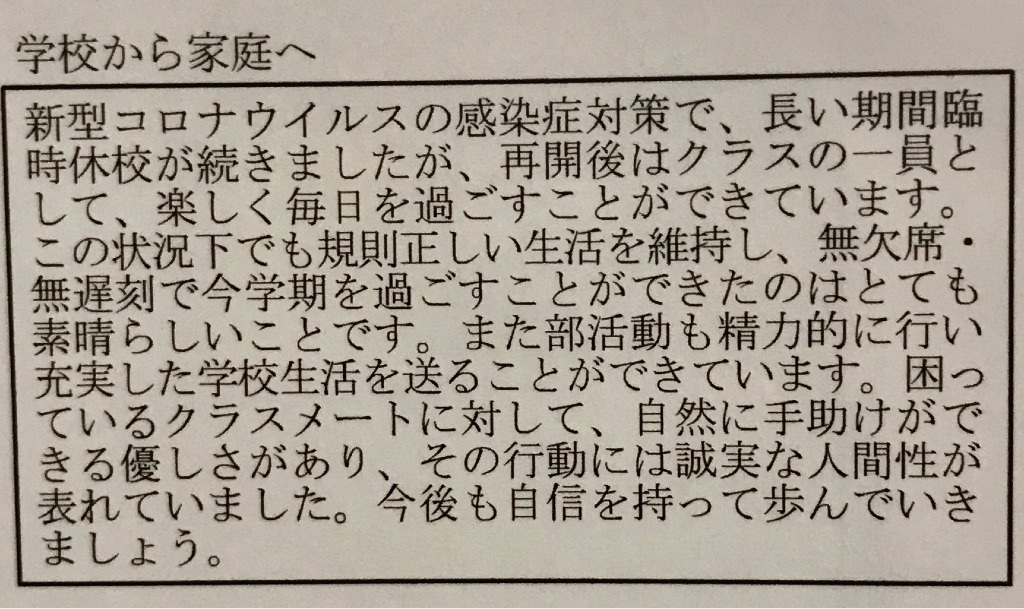 学校から家庭へ
新型コロナウイルスの感染症対策で、長い期間臨
時休校が続きましたが、再開後はクラスの一員と
して、楽しく毎日を過ごすことができています。
この状況下でも規則正しい生活を維持し、無欠席・
無遅刻で今学期を過ごすことができたのはとても
素晴らしいことです。また部活動も精力的に行い
充実した学校生活を送ることができています。困っ
ているクラスメートに対して、自然に手助けがで
きる優しさがあり、その行動には誠実な人間性が
表れていました。今後も自信を持って歩んでいき
ましょう。